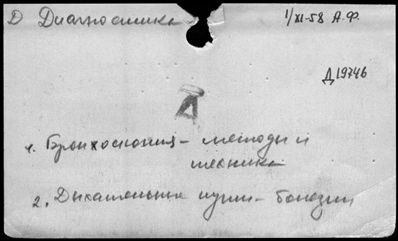 Д Диагностика 1/XI-58 А.Ф.
Д19746
Д
1. Бронхоскопия - методы и
техника
2. Дыхательные пути - болезни